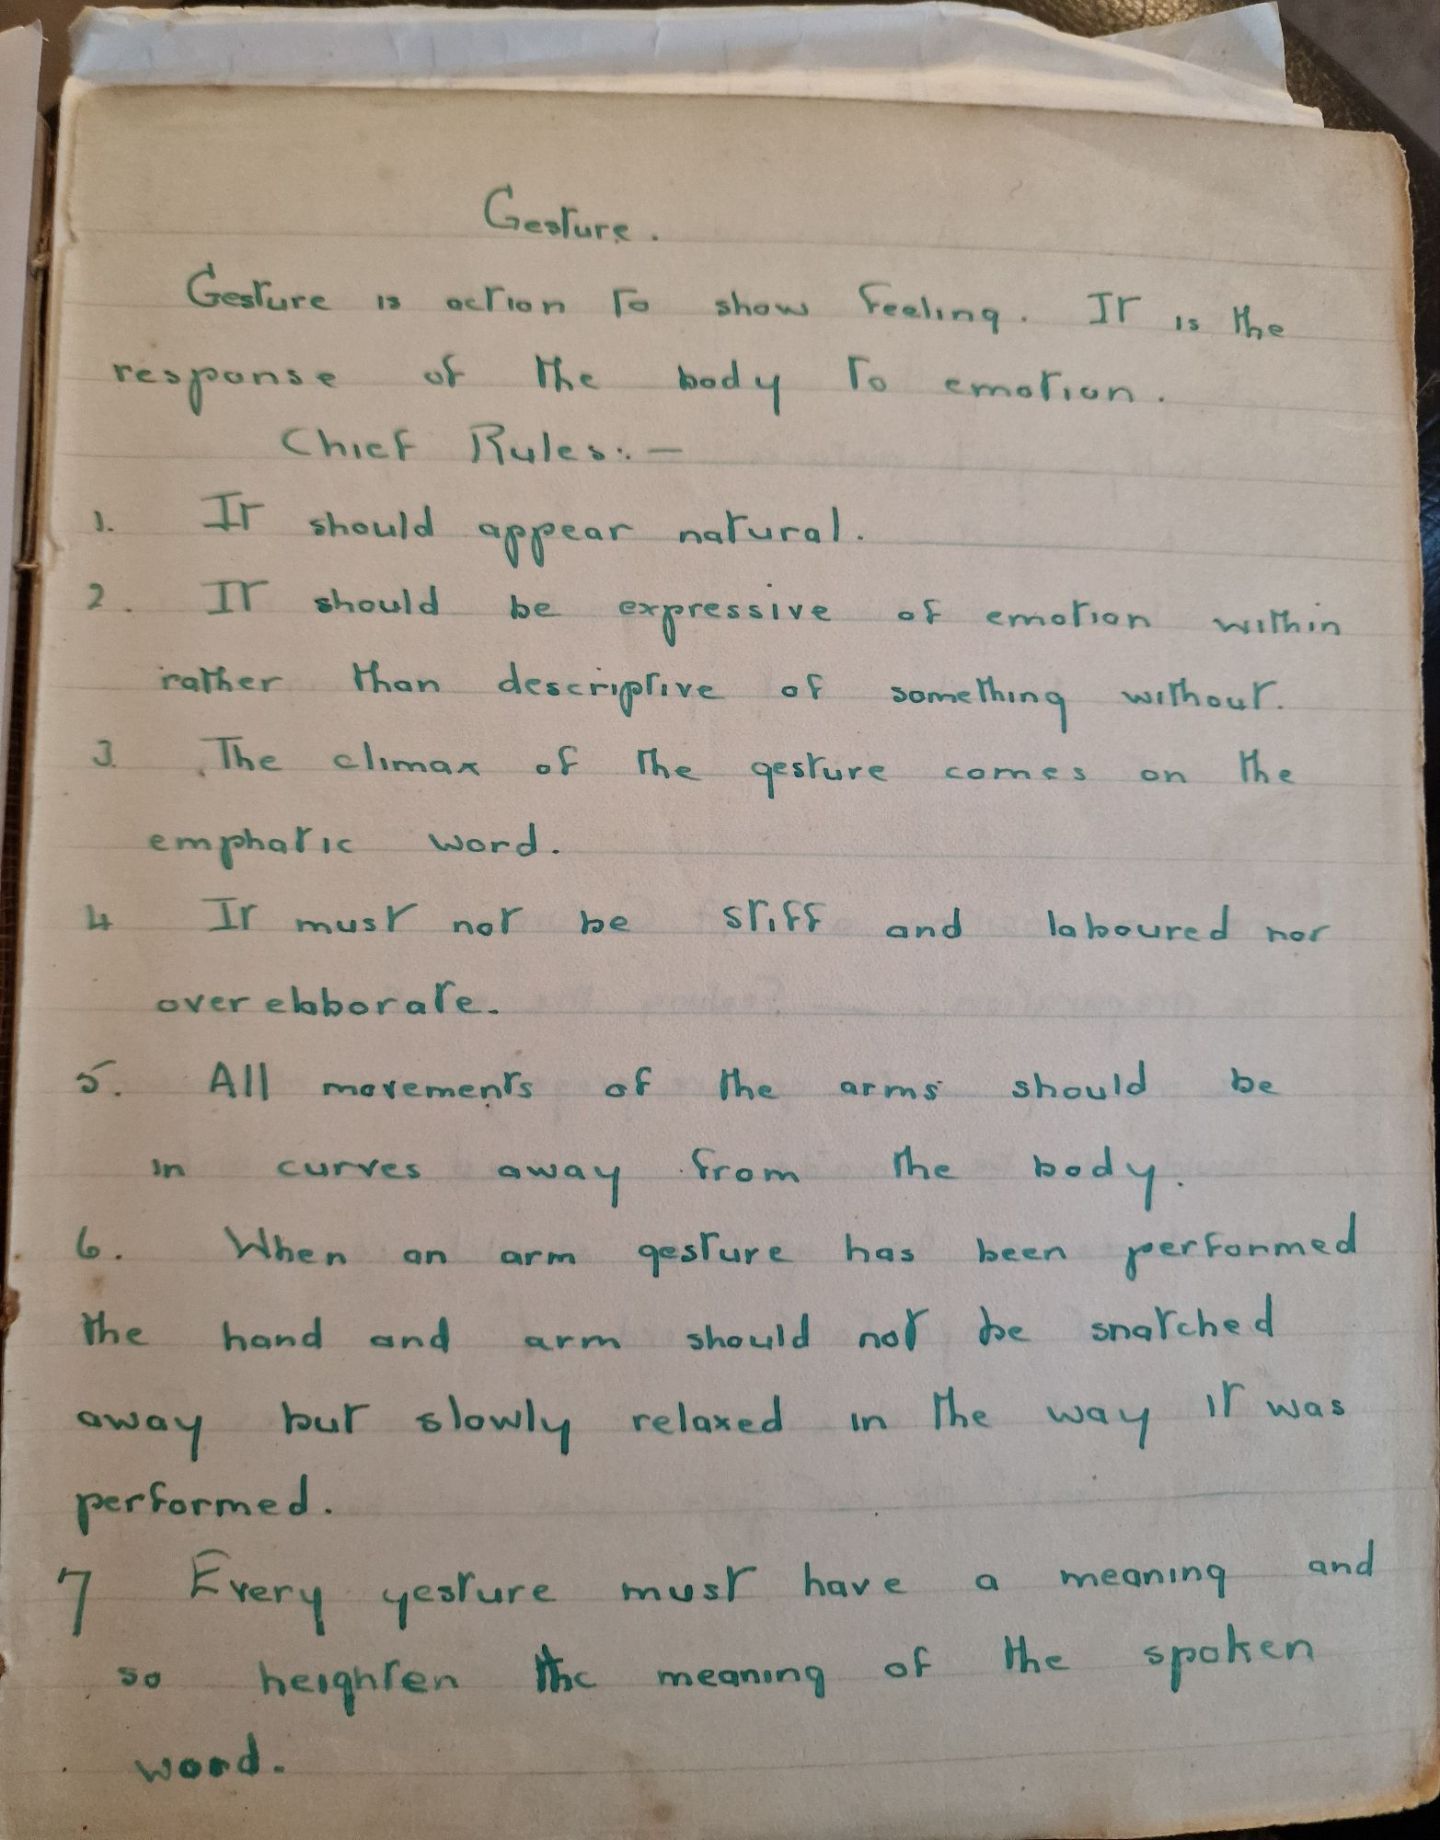 Gesture.
Gesture is action to show feeling. It is the
response of the body to emotion.
Chief Rules:-
1. It should appear natural.
2. It should be expressive of emotion within
rather than descriptive of something without.
3. The climax of the gesture comes on the
emphatic word.
4 It must not be stiff and laboured nor
over elaborate.
5. All movements of the arms should be
in curves away from the body.
6. When an arm gesture has been performed
the hand and arm should not be snatched
away but slowly relaxed in the way it was
performed.
7 Every gesture must have a meaning and
so heighten the meaning of the spoken
word.